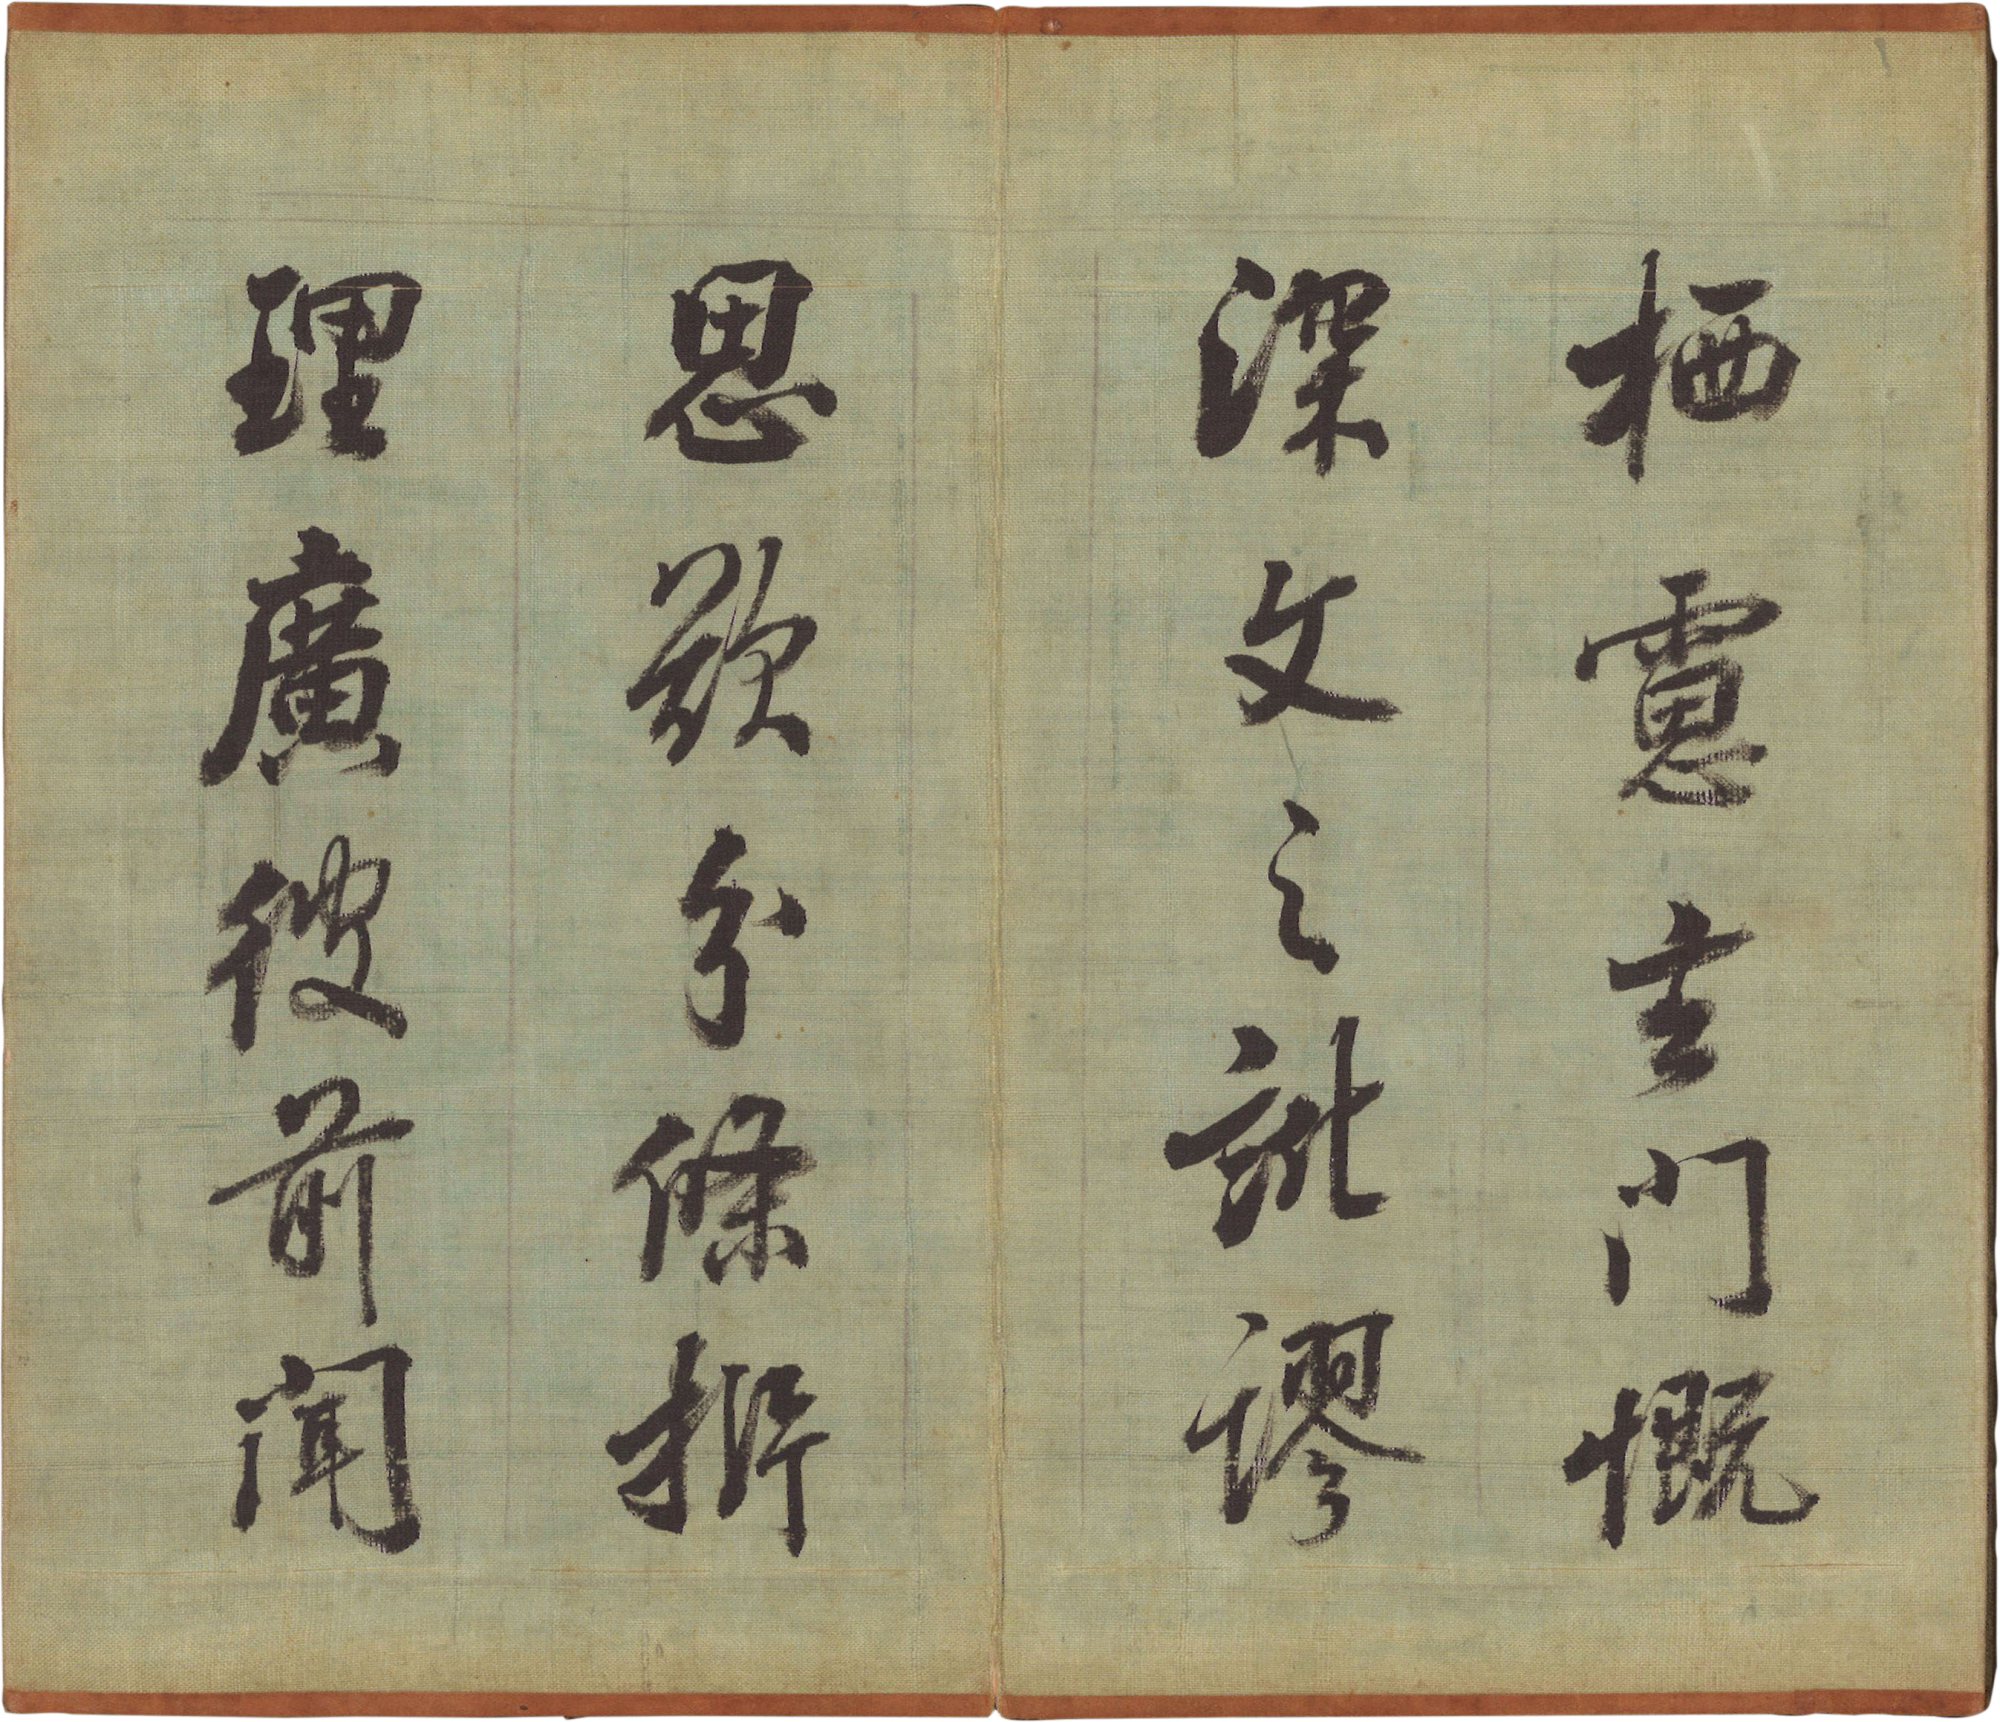 栖慮玄門慨
深文之訛謬
思欲分條析
理廣彼前聞